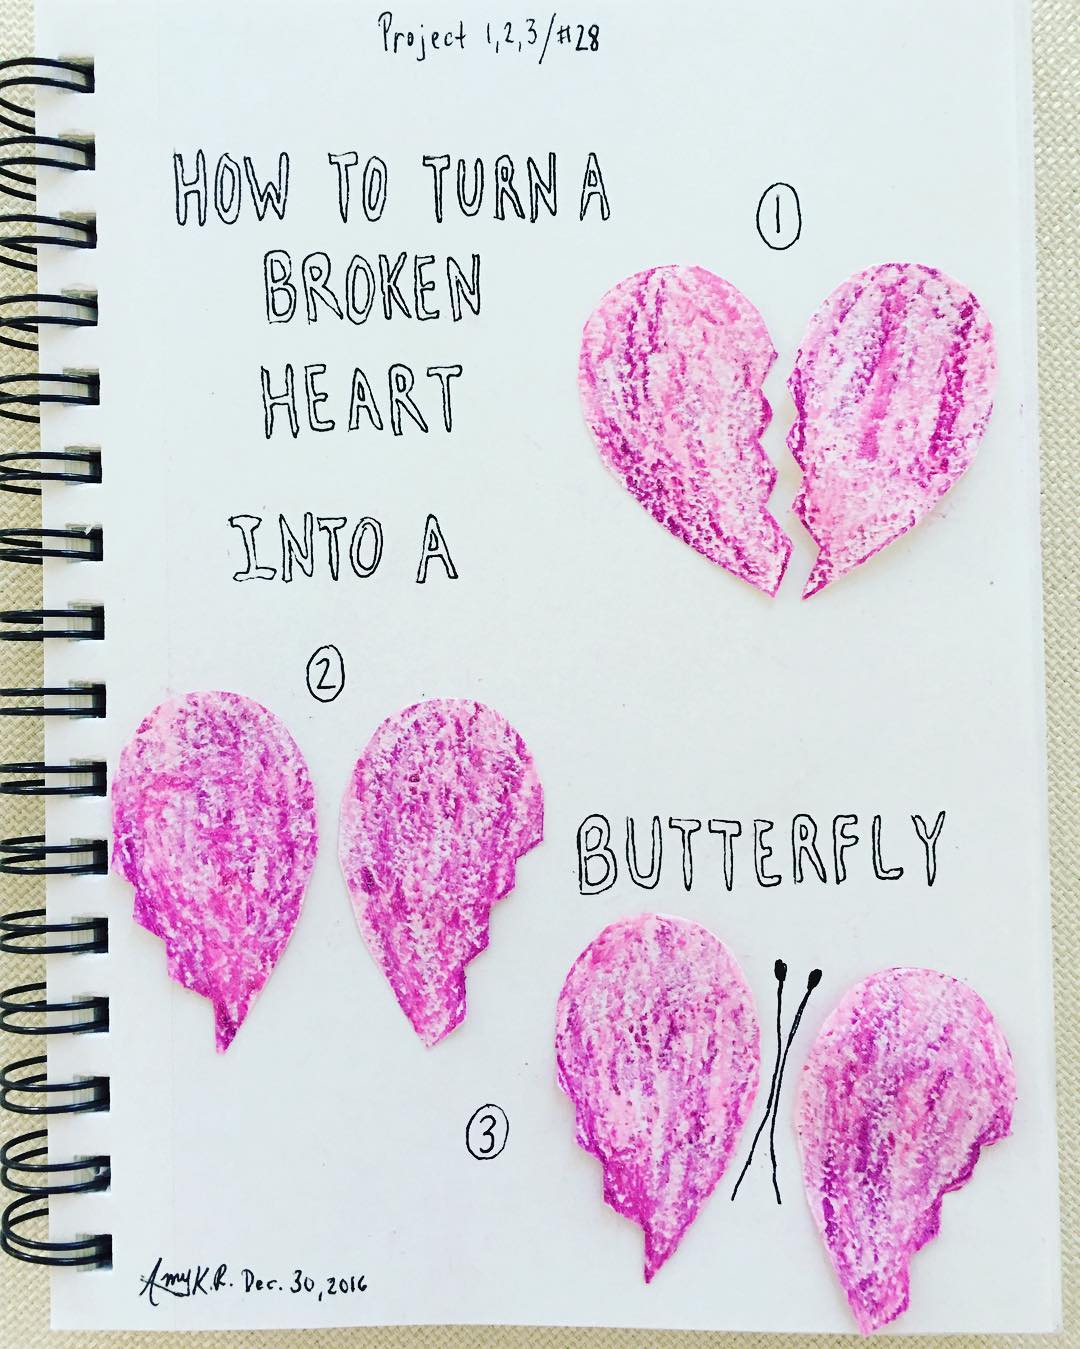 Project 1,2,3/#28
HOW TO TURN A
BROKEN
HEART
1
INTO A
2
BUTTERFLY
3
Amy K.R. Dec. 30, 2016